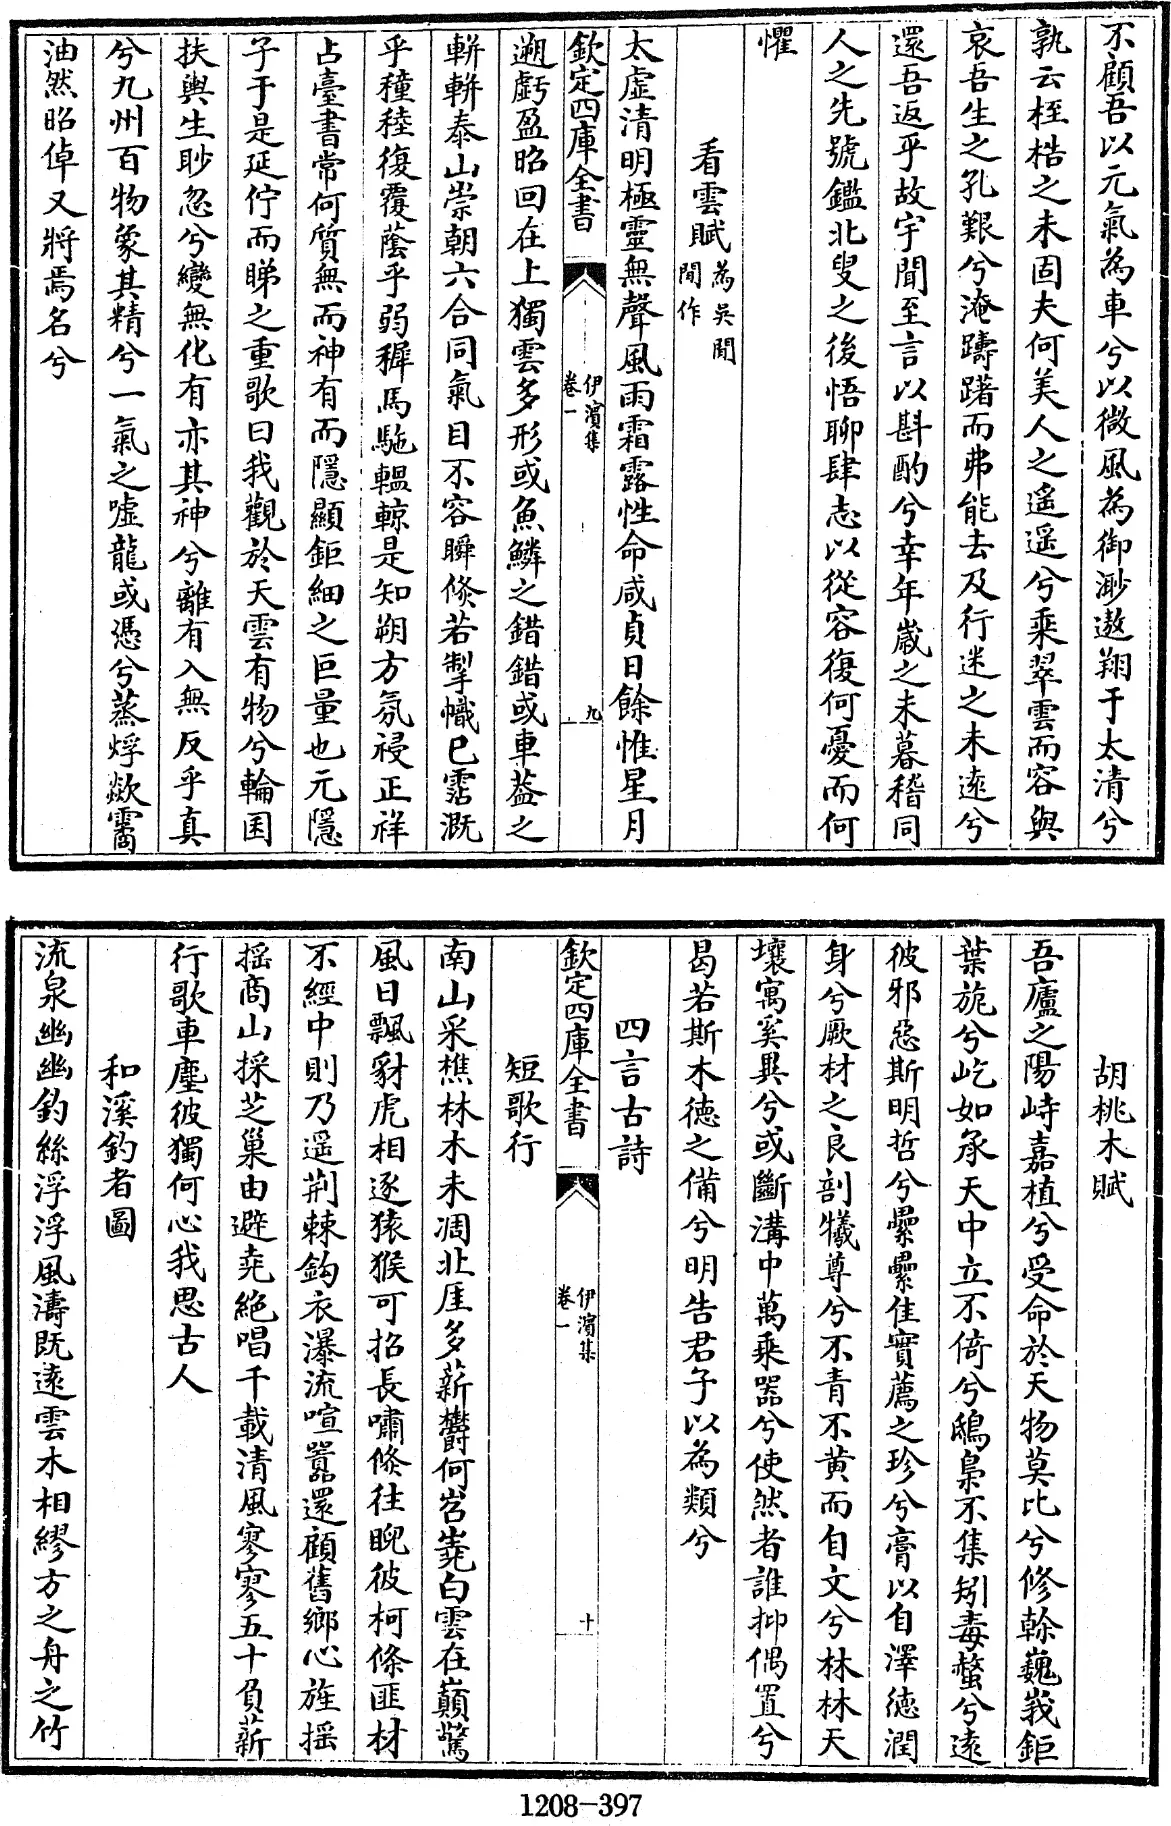 不顧吾以元氣為車兮以微風為御渺遨翔于太清兮
孰云桎梏之未固夫何美人之遥遥兮乘翠雲而容與
哀吾生之孔艱兮淹躊躇而弗能去及行迷之未遠兮
還吾返乎故宇聞至言以斟酌兮幸年嵗之未暮稽同
人之先號鑑北叟之後悟聊肆志以從容復何憂而何
懼
看雲賦為吳閒
閒作
太虚清明極靈無聲風雨霜露性命咸貞日餘惟星月
欽定四庫全書
伊濱集
卷一
九
遡虧盈昭回在上獨雲多形或魚鱗之錯錯或車葢之
輧輧泰山崇朝六合同氣目不容瞬倐若掣幟已霑溉
乎穜稑復覆蔭乎弱穉馬馳轀輬是知朔方氛祲正祥
占臺書常何質無而神有而隱顯鉅細之巨量也元隱
子于是延佇而睇之重歌曰我觀於天雲有物兮輪囷
扶輿生眇忽兮變無化有亦其神兮離有入無反乎真
兮九州百物象其精兮一氣之嘘龍或憑兮蒸烰歘霱
油然昭倬又將焉名兮
胡桃木賦
吾廬之陽峙嘉植兮受命於天物莫比兮修榦巍峩鉅
葉旎兮屹如承天中立不倚兮鴟梟不集矧毒螫兮遠
彼邪惡斯明哲兮纍纍佳實薦之珍兮膏以自澤徳潤
身兮厥材之良剖犧尊兮不青不黄而自文兮林林天
壤寓奚異兮或斷溝中萬乘器兮使然者誰抑偶置兮
曷若斯木徳之備兮明告君子以為類兮
四言古詩
欽定四庫全書
伊濱集
卷一
十
短歌行
南山采樵林木未凋北厓多薪欝何岧嶤白雲在巔驚
風日飄豺虎相逐猿猴可招長嘯倐徃睨彼柯條匪材
不經中則乃遥荆棘鈎衣瀑流喧囂還顧舊鄉心旌揺
揺商山採芝巢由避堯絶唱千載清風寥寥五十負薪
行歌車塵彼獨何心我思古人
和溪釣者圖
流泉幽幽釣絲浮浮風濤既遠雲木相繆方之舟之竹
1208-397